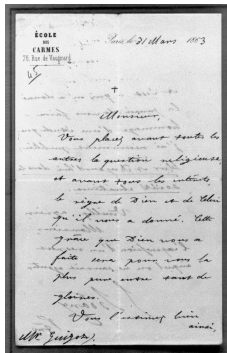 ÉCOLE
DES
CARMES
76, Rue de Vaugirard
Paris le 31 Mars 1883
Monsieur,
Vous placez avant toutes les
autres la question religieuse,
et avant tous les intérêts
le règne de Dieu et de Celui
qu'il nous a donné. Cette
grâce que Dieu nous a
faite sera pour vous la
plus pure entre tant de
gloires.
Vous l'estimez bien
ainsi,
Mr. Guizot